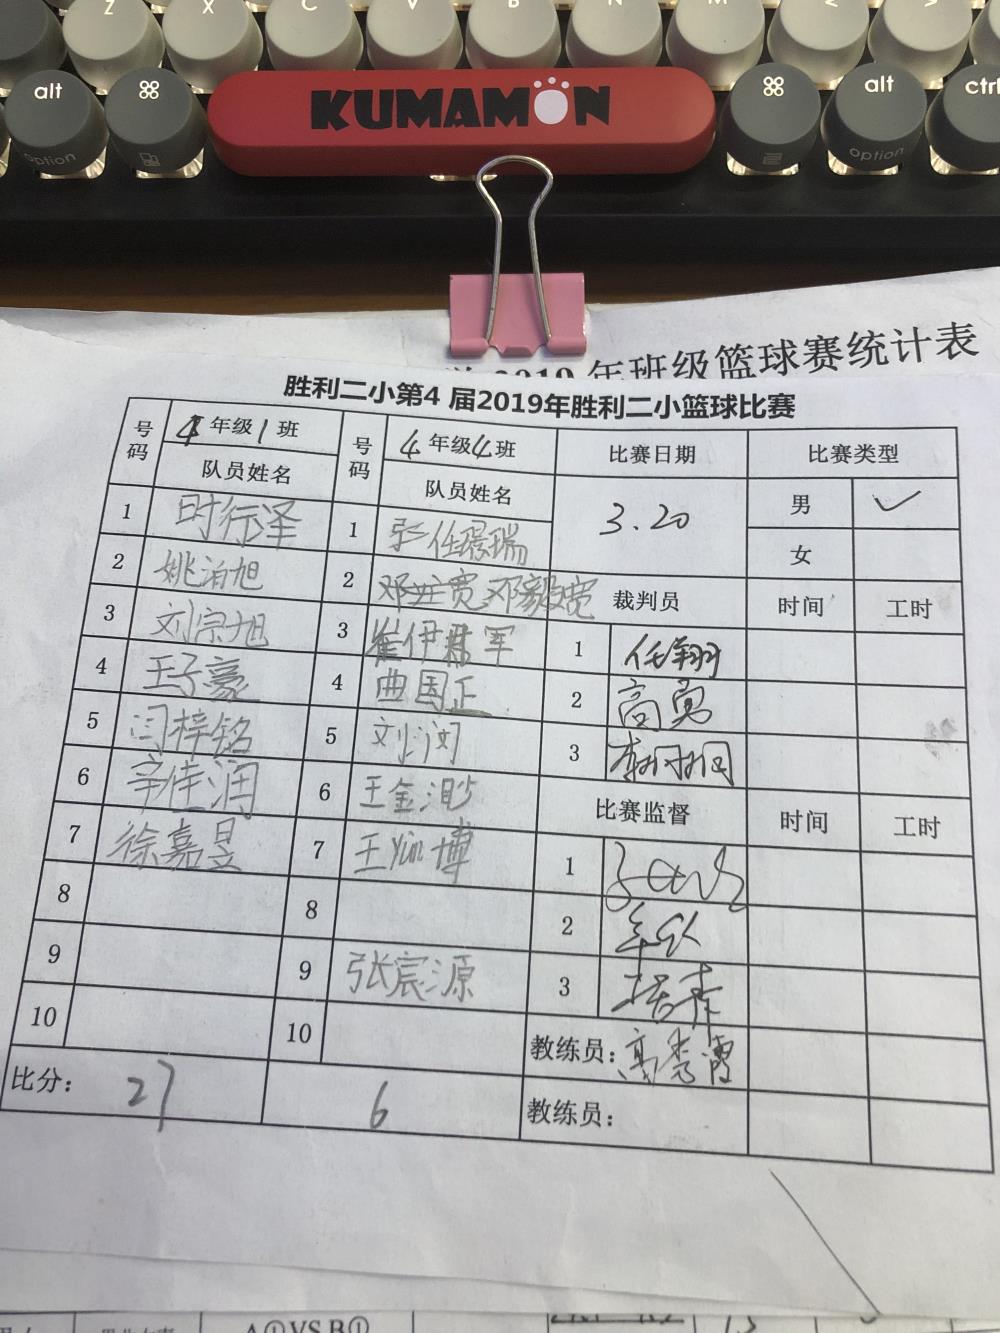 Z X C V B N M < >
alt ⌘ KUMAMON ⌘ alt ctrl
option option
2019 年班级篮球赛统计表
胜利二小第4 届2019年胜利二小篮球比赛
号码 4 年级 1 班 号码 4 年级 4 班 比赛日期 比赛类型
队员姓名 队员姓名 3.20 男 ✓
1 时行泽 1 张任璟瑞 女
2 姚泊旭 2 邓毅宽 裁判员 时间 工时
3 刘宗旭 3 崔伊 军 1 任翔
4 王子豪 4 曲国正 2 高勇
5 闫梓铭 5 刘汶 3
6 辛佳润 6 王金渺 比赛监督 时间 工时
7 徐嘉昱 7 王 博 1
8 8 2
9 9 张宸源 3
10 10 教练员：高秀霞
比分： 27 6 教练员：
A① VS B①